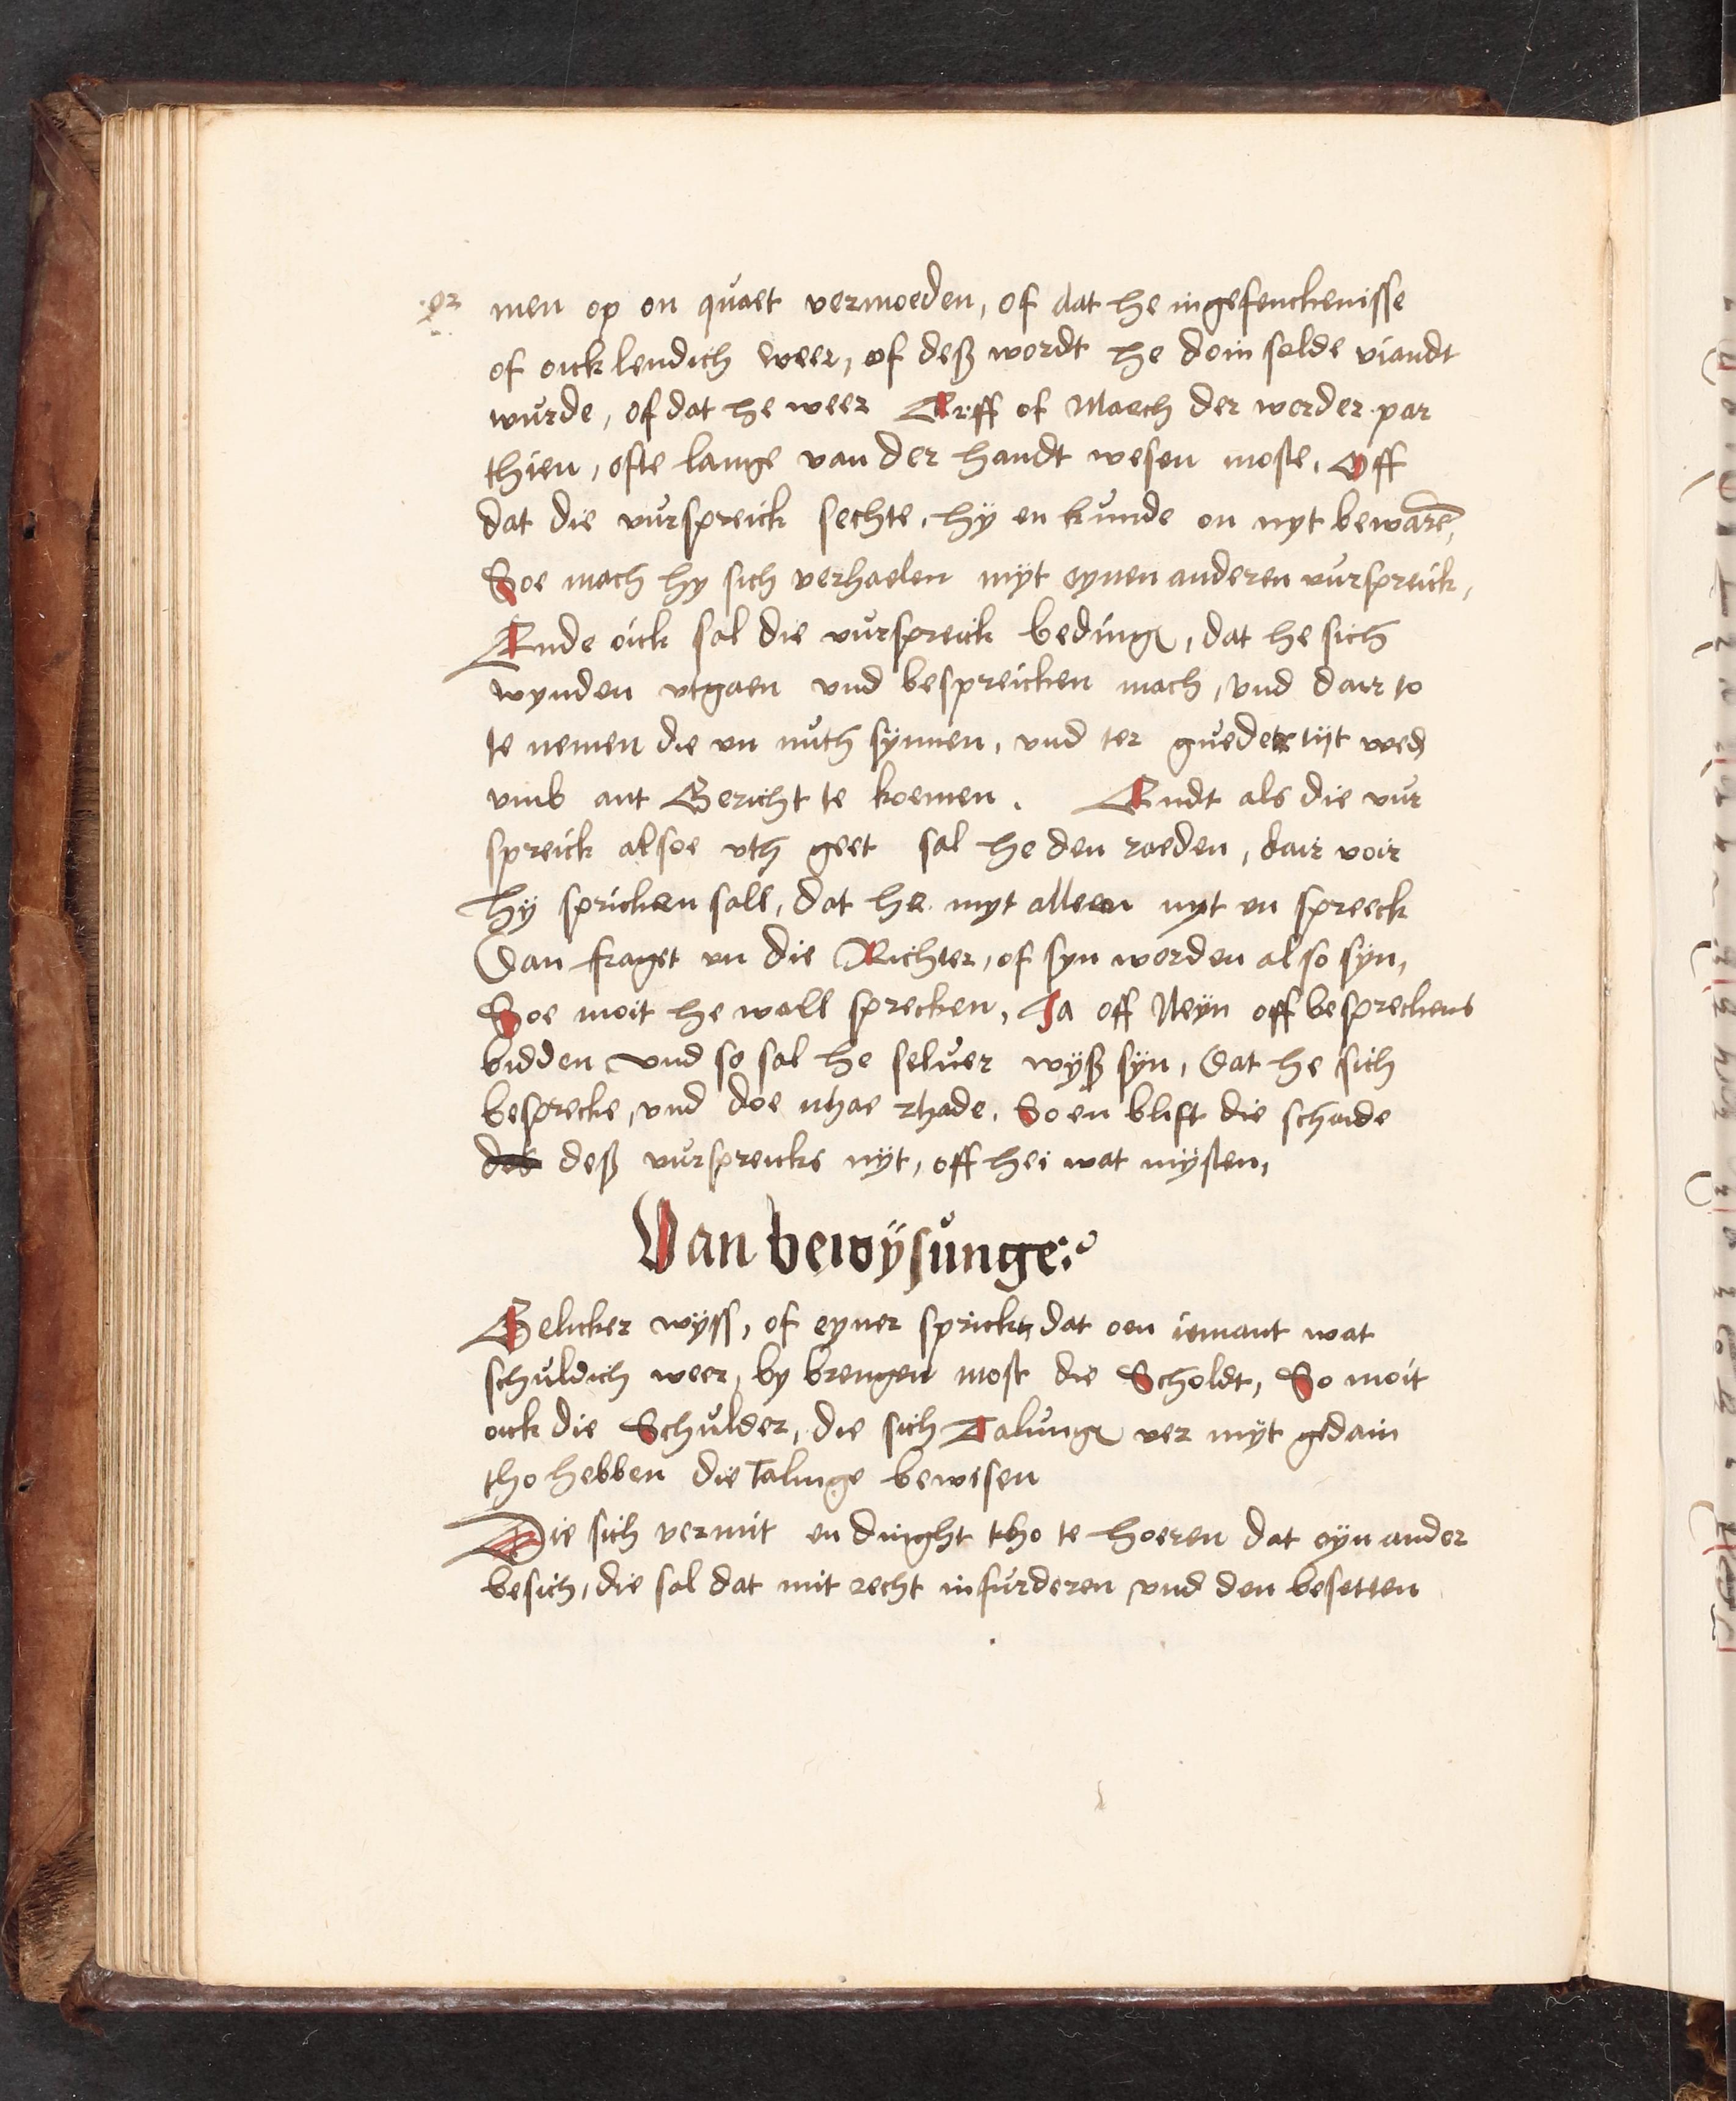 er men op on quaet vermoeden, of dat he ingefenckenisse
of oick lendich weer, of deß wordt he doin solde viandt
wurde, of dat he weer Eriff of Maech der werder par
thien, ofte lange van der handt wesen moste, Off
dat die vurspreick sechte, hÿ en kunde on nyt beware,
Soe mach hy sich verhaelen mÿt eynen anderen vurspreick,
Ende oick sal die vurspreick beding, dat he sich
wynden vtgaen vnd bespreicken mach, vnd dair to
te nemen die vn nuth sÿnnen, vnd ter gueder tijt wed
vmb ant Gericht te koemen. Endt als die vur
spreick alsoe vth geet sal he den raeden, dair voir
hÿ spricken sall, dat he myt alleen nyt en spreeck
Dan fraget vn die Richter, of syn worden also sÿn,
Soe moit he wall sprecken, Ja off Neÿn off besprechens
bidden vnd so sal he seluer wÿß sÿn, Dat he sich
besprecke, vnd doe nhae rhade. So en blift die schaide
des deß vurspreicks nÿt, off hei wat mÿsten,
Van bewÿsunge:
Gelicker wÿss, of eyner sprickt, dat oen iemant wat
schuldich weer, by brengen most die Scholdt, So moit
oick die Schulder, die sich Talung ver mÿt gedain
tho hebben die Talinge bewisen
Die sich vermit en dinght tho te hoeren dat eÿn ander
besich, die sal dat mit recht infurderen vnd den besetten